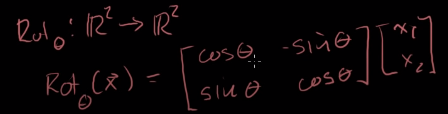 Rot_θ : ℝ² → ℝ²
Rot_θ(x⃗) = [cosθ -sinθ; sinθ cosθ] [x₁; x₂]